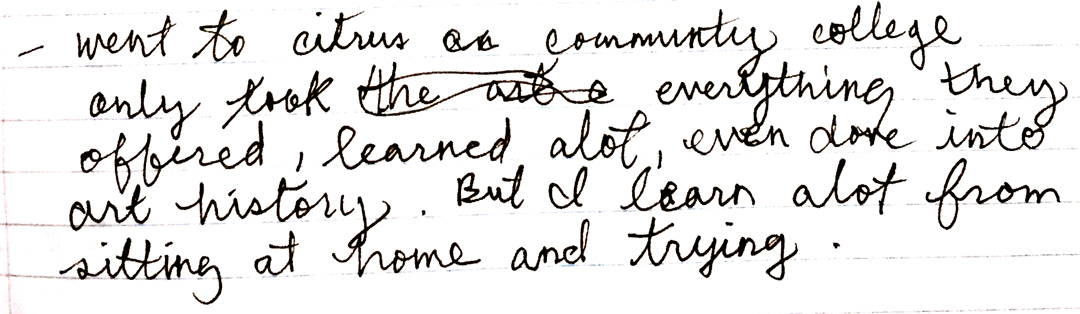 - went to citrus as community college
only took the art e everything they
offered, learned alot, even dove into
art history. But I learn alot from
sitting at home and trying.